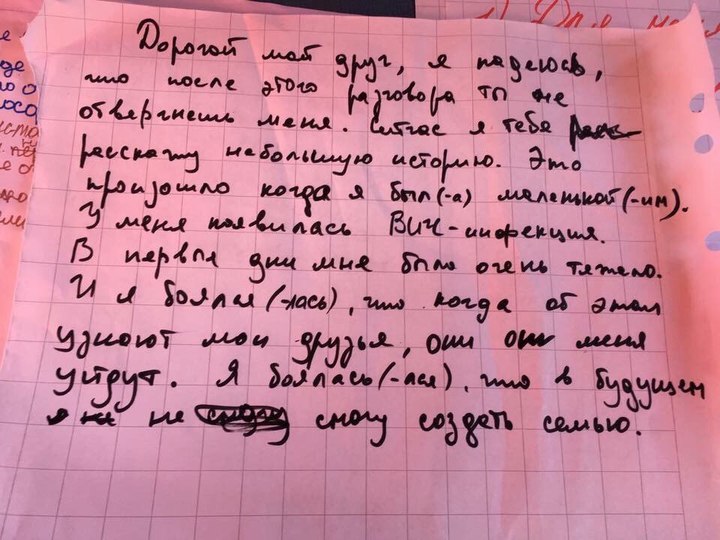 Дорогой мой друг, я надеюсь,
что после этого разговора ты не
отвергнешь меня. Сейчас я тебе
расскажу небольшую историю. Это
произошло когда я был(-а) маленькой(-им).
У меня появилась ВИЧ-инфекция.
В первые дни мне было очень тяжело.
И я боялся(-лась), что когда об этом
узнают мои друзья, они от меня
уйдут. Я боялась(-лся), что в будущем
не смогу создать семью.